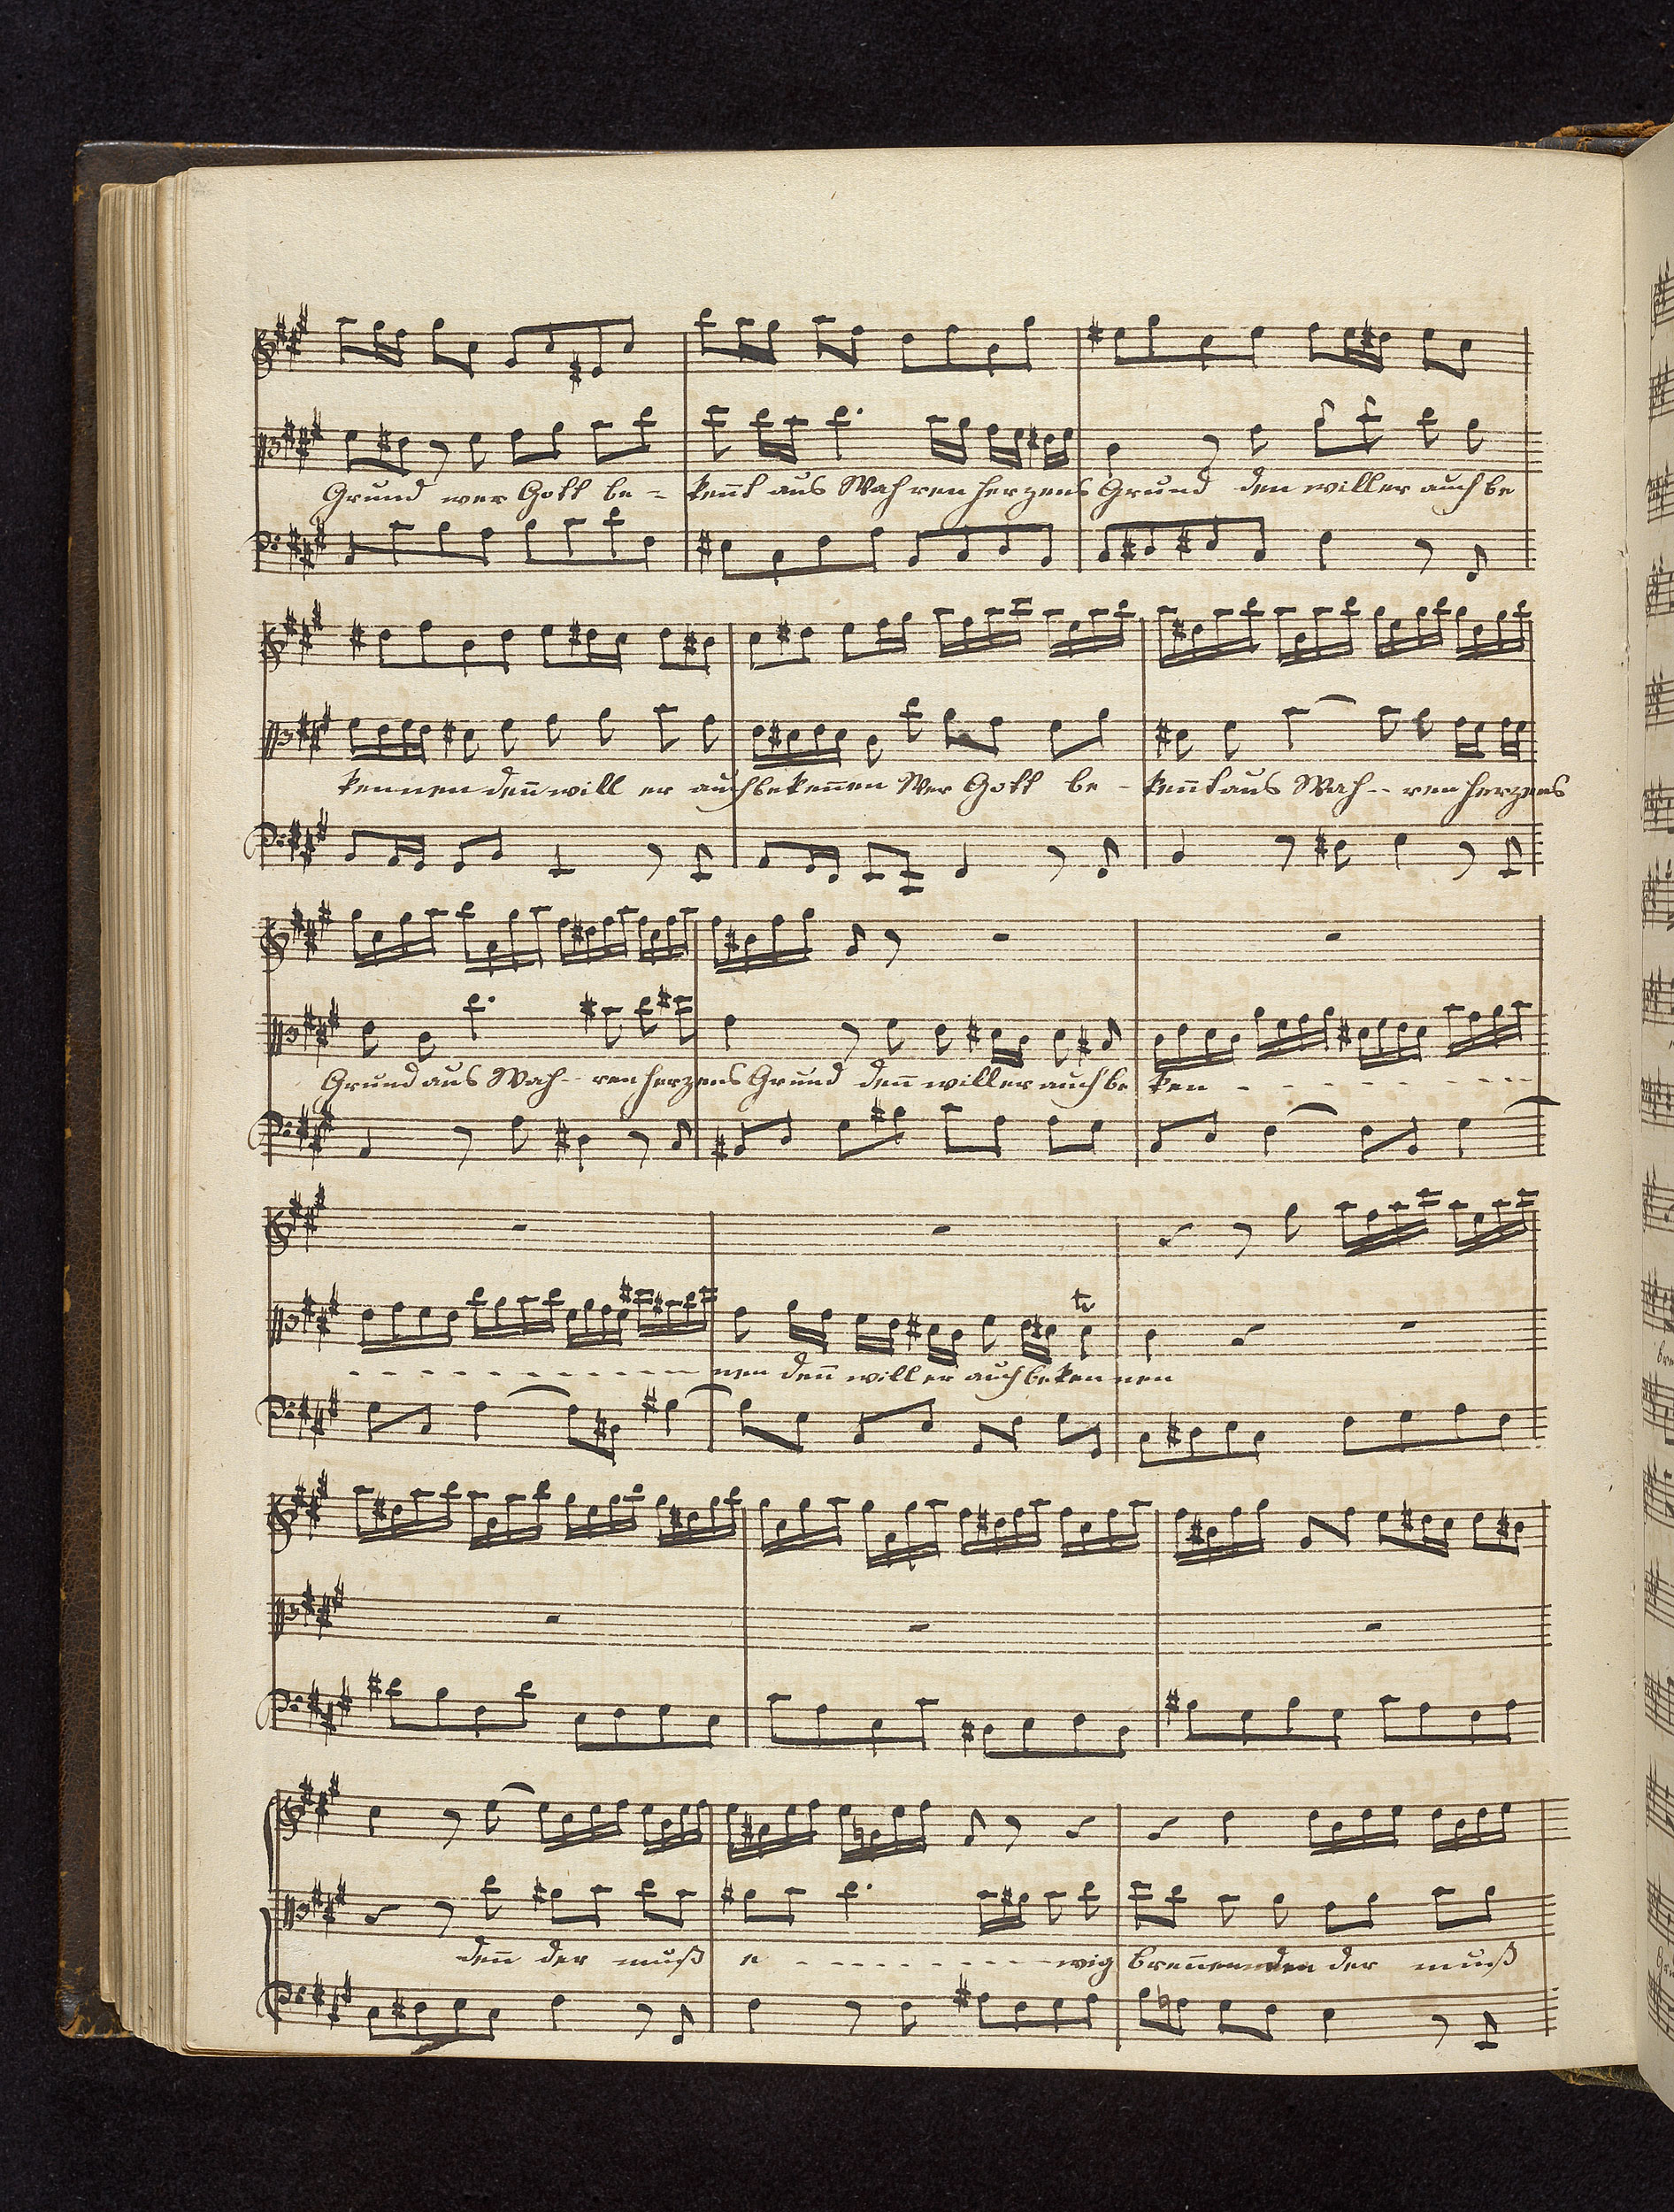 Grund wer Gott be - kennt aus Wahren herzens Grund den will er auch be
kennen denn will er auch bekennen Wer Gott be - kennt aus Wah - - ren herzens
Grund aus Wah - - ren herzens Grund denn will er auch be ken - - - - - - - -
- - - - - - - - - - nen denn will er auch bekennen
denn der muß e - - - - - - - - wig brennen den der muß